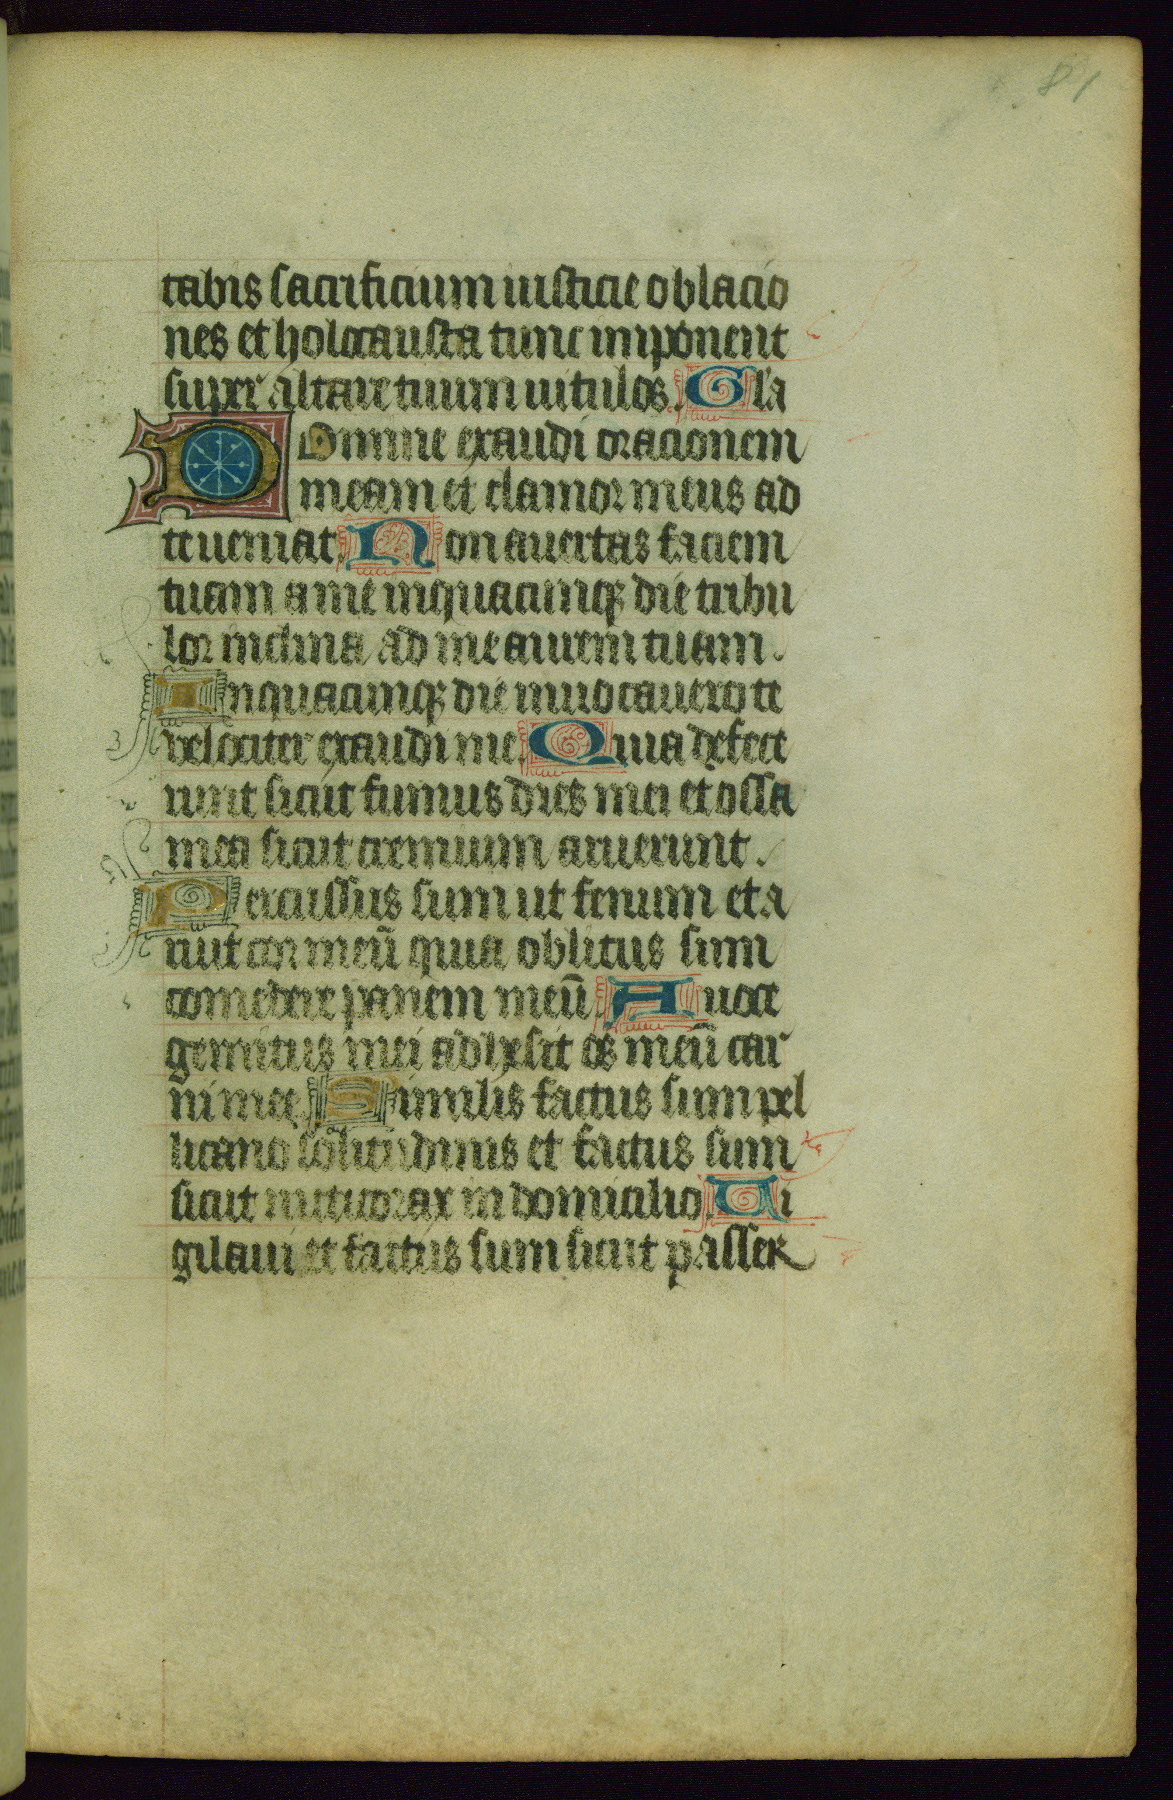 81
tabis sacrificium iusticie oblacio
nes et holocausta tunc inponent
super altare tuum uitulos. Gl'a
Domine exaudi oracionem
meam et clamor meus ad
te ueniat. Non auertas faciem
tuam a me inquacumqꝫ die tribu
lor inclina ad me aurem tuam.
Inquacumqꝫ die inuocauero te
velociter exaudi me. Quia defece
runt sicut fumus dies mei et ossa
mea sicut cremium aruerunt.
Percussus sum ut fenum et a
ruit cor meū quia oblitus sum
comedere panem meū. A uoce
gemitus mei adhesit os meū car
ni mee. Similis factus sum pel
licano solitudinis et factus sum
sicut nicticorax in domicilio. Ui
gilaui et factus sum sicut passer